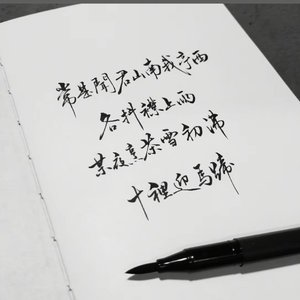 常是闻君山南我亭西
各抖襟上雨
某夜烹茶雪初沸
十裡迎馬蹄